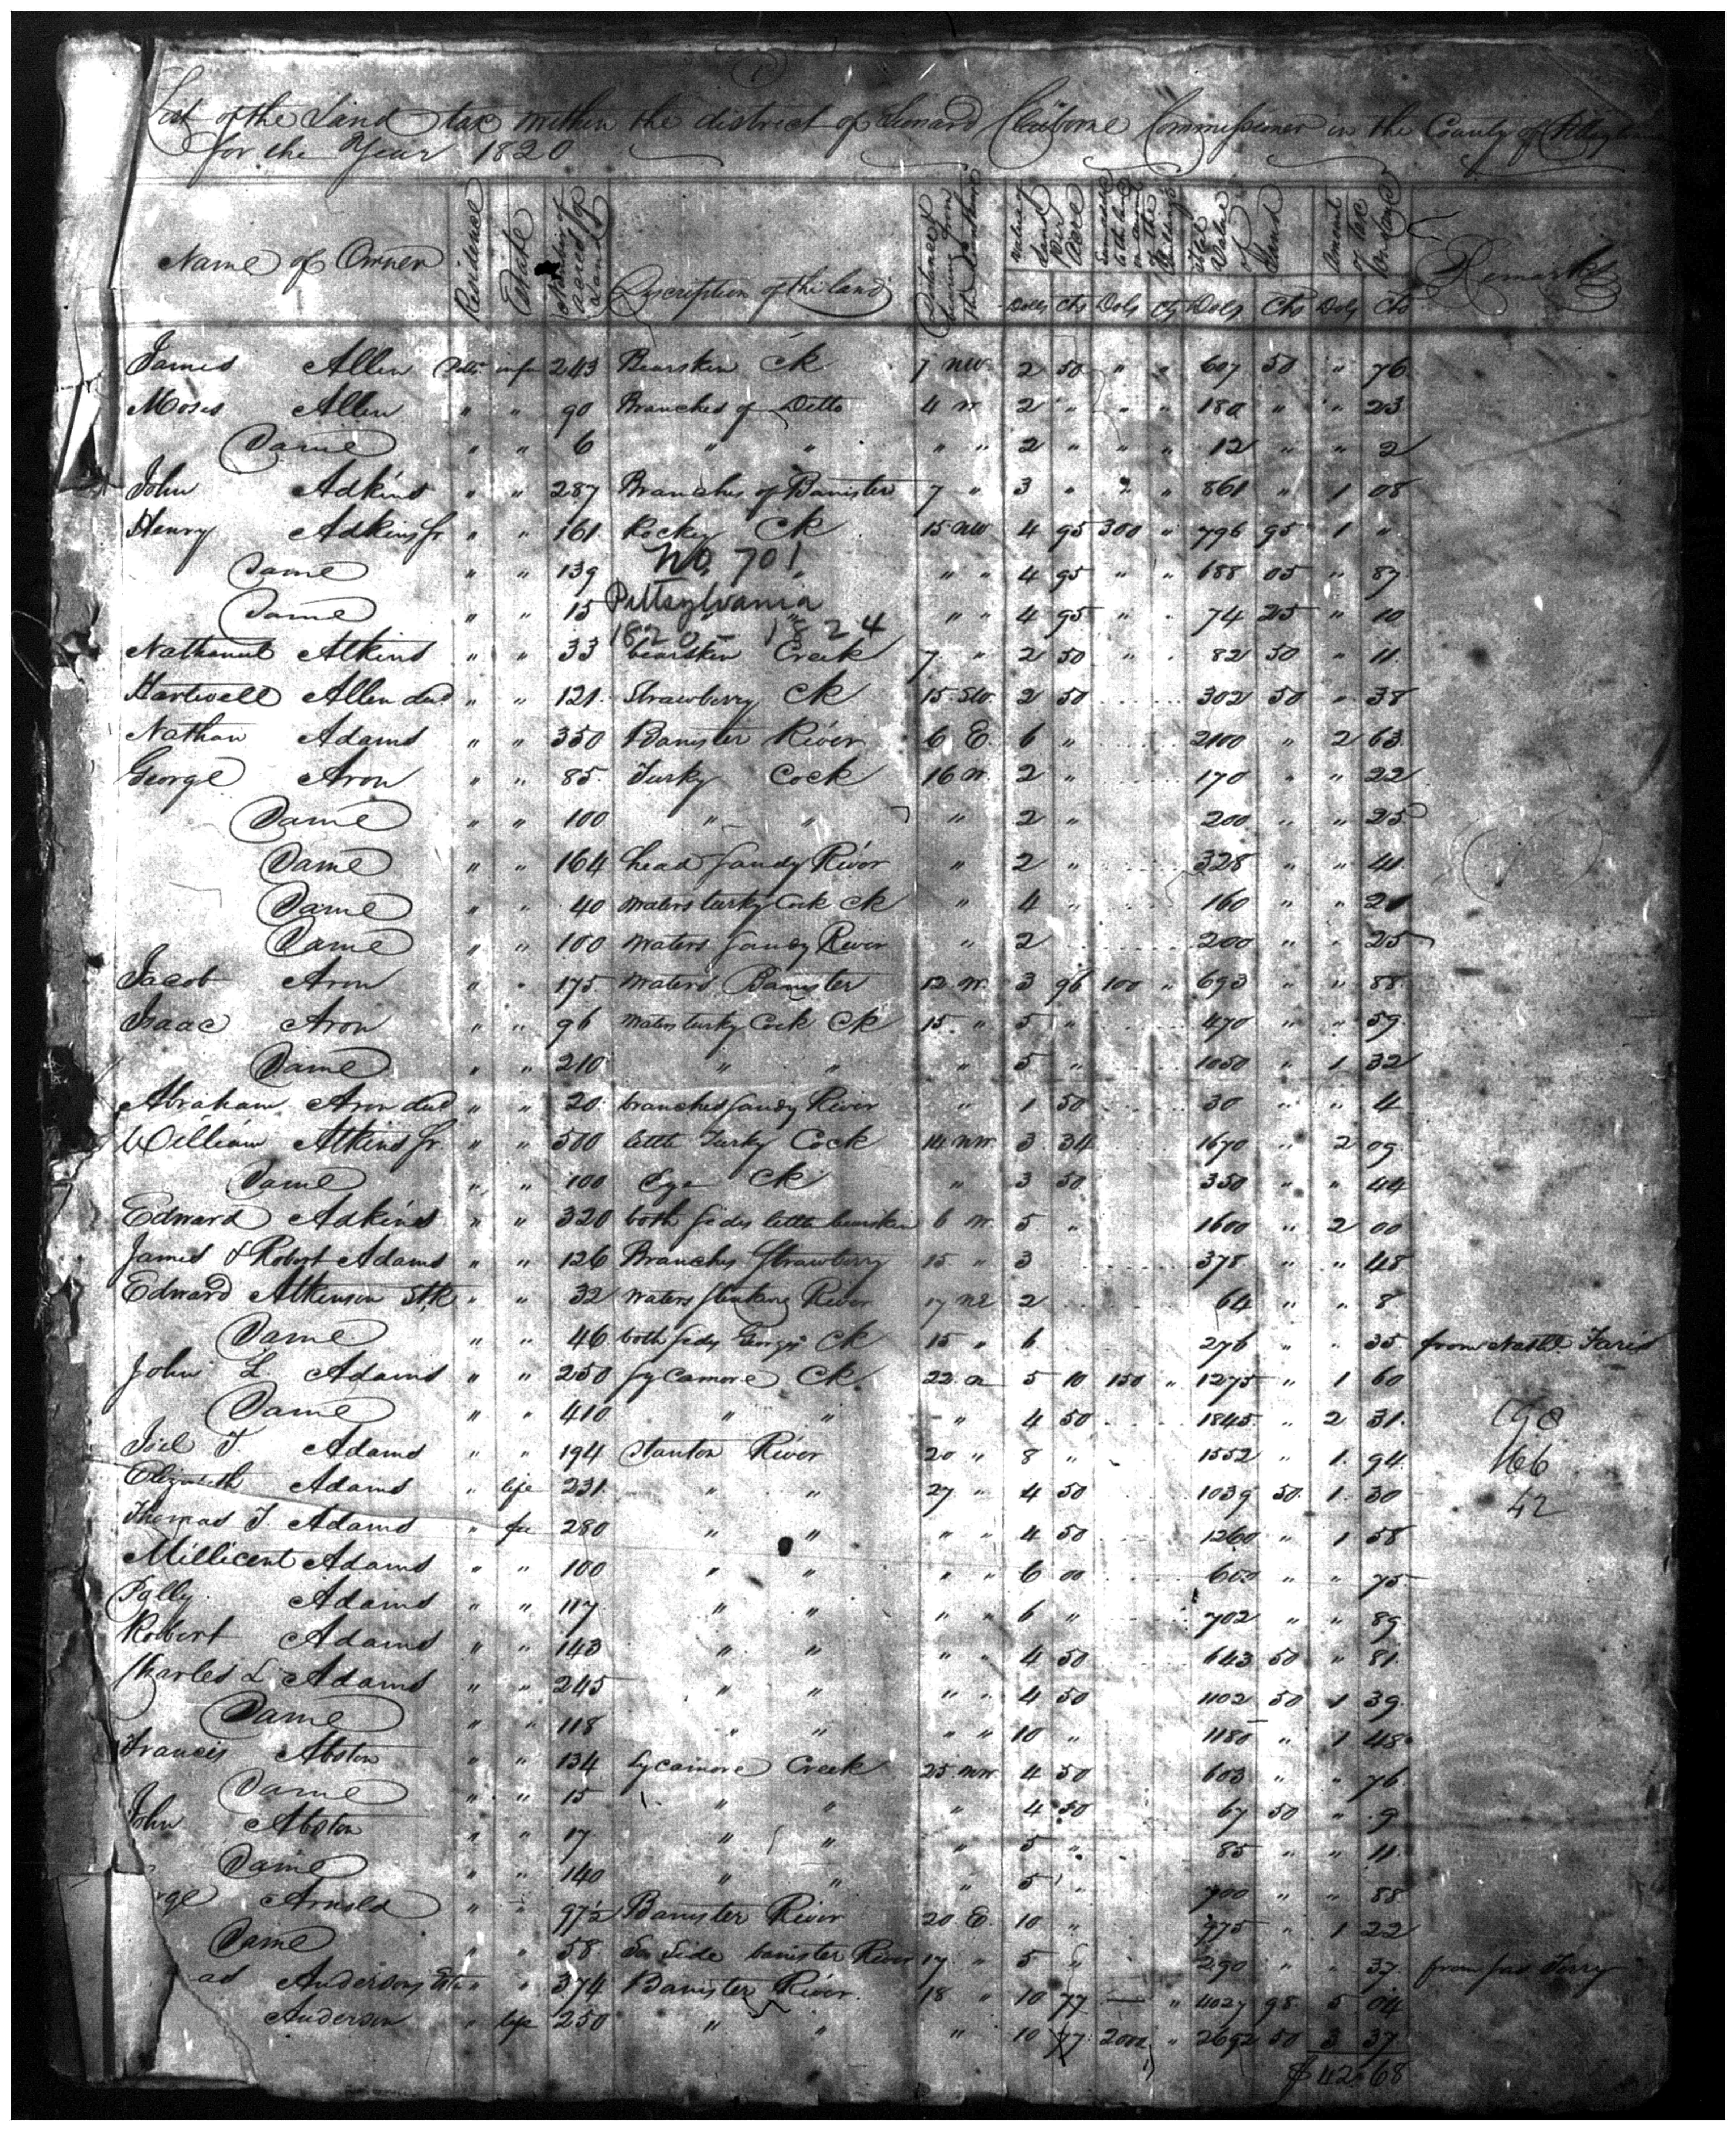 List of the Land tax within the district of Leonard Claiborne Commissioner in the County of
for the Year 1820
Name of Owner Residence Estate Number of acres of Land Description of the land Distance & bearing from the Courthouse Value of Land per Acre Total Value of Land Amount of Tax Remarks
Dolls Cts Dols Cts Dols Cts Dols Cts
James Allen 243 Bearskin Ck 7 NW 2 50 " " 607 50 " 76
Moses Allen " " 90 Branches of Ditto 4 W 2 " " " 180 " " 23
Same " " 6 " " " " 2 " " " 12 " " 2
John Adkins " " 287 Branches of Banister 7 " 3 " " " 861 " 1 08
Henry Adkins Jr " " 161 Rockey Ck 15 NW 4 95 300 " 796 95 1 "
No 701
Same " " 139 " " " 4 95 " " 688 05 " 87
Pittsylvania
Same " " 15 " " " 4 95 " " 74 25 " 10
1820 - 1824
Nathaniel Atkins " " 33 bearskin Creek 7 " 2 50 " " 82 50 " 11
Hartwell Allen decd " " 121 Strawberry Ck 15 SW 2 50 302 50 " 38
Nathan Adams " " 350 Banister River 6 E 6 " 2100 " 2 63
George Aron " " 85 Turky Cock 16 W 2 " 170 " " 22
Same " " 100 " " " 2 " 200 " " 25
Same " " 164 head Sandy River " 2 " 328 " " 41
Same " " 40 waters turky Cock Ck " 4 " 160 " "
Same " " 100 waters Sandy River " 2 200 " " 25
Jacob Aron " " 175 waters Banister 12 W 3 96 100 " 693 " " 88
Isaac Aron " " 96 waters turky Cock Ck 15 " 5 " 470 " " 59
Same " " 210 " " " 5 " 1050 " 1 32
Abraham Aron decd " " 20 branches Sandy River " 1 50 30 " " 4
William Atkins Jr " " 500 little Turky Cock 14 NW 3 34 1670 " 2 09
Same " " 100 Ck " 3 50 350 " " 44
Edward Adkins " " 320 both sides little bearskin 6 W 5 " 1600 " 2 00
James & Robert Adams " " 126 Branches Strawberry 15 " 3 378 " " 48
Edward Atkinson " " 32 waters Stinking River 17 NE 2 64 " " 8
Same " " 46 both sides Georges Ck 15 " 6 276 " " 35 from Nathl Faris
John L. Adams " " 250 Sycamore Ck 22 5 10 150 " 1275 " 1 60
Same " " 410 " " " 4 50 1845 " 2 31
Joel T. Adams " " 194 Stanton River 20 " 8 " 1552 " 1 94 166
Elizabeth Adams " life 231 " " 27 " 4 50 1039 50 1 30 42
Thomas T. Adams " fee 280 " " " " 4 50 1260 " 1 58
Millicent Adams " " 100 " " " " 6 00 600 " " 75
Polly Adams " " 117 " " " " 6 " 702 " " 89
Robert Adams " " 143 " " " " 4 50 643 50 " 81
Charles L Adams " " 245 " " " " 4 50 1102 50 1 39
Same " " 118 " " " " 10 " 1180 " 1 48
Francis Abston " " 134 Sycamore Creek 25 NW 4 50 603 " " 76
Same " " 15 " " " 4 50 67 50 " 9
John Abston " " 17 " " " 5 " 85 " " 11
Same " " 140 " " " 5 " 700 " " 88
Arnold " " 97½ Banister River 20 E 10 " 975 " 1 22
Same " " 58 So Side banister River 17 " 5 " 290 " " 37 from Jas Terry
Andersons Este " " 374 Banister River 18 " 10 77 — " 4027 98 5 04
Anderson " life 250 " " " 10 77 2000 " 2692 50 3 37
$42.68